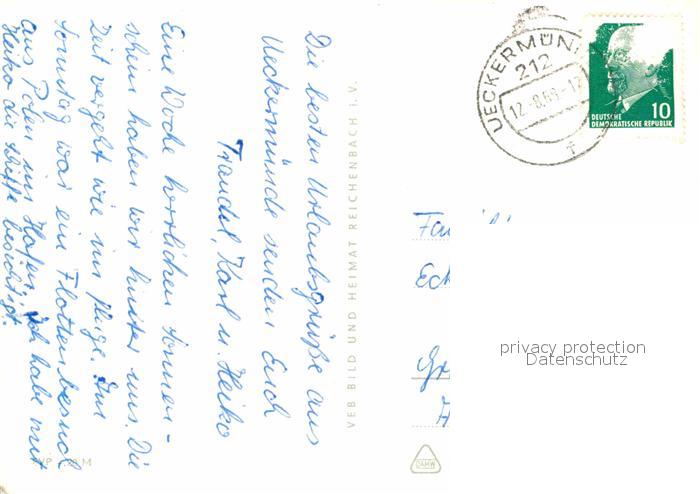 Die besten Urlaubsgrüße aus
Ueckermünde senden Euch
Traudel, Karl u. Heiko
Eine Woche herrlichen Sonnen-
schein haben wir hinter uns. Die
Zeit vergeht wie im Fluge. Am
Sonntag war ein Flottenbesuch
aus Polen im Hafen. Ich habe mit
Heiko die Schiffe besichtigt.
VEB BILD UND HEIMAT REICHENBACH I. V.
UECKERMÜN
212
12.-8.69-17
f
10
DEUTSCHE
DEMOKRATISCHE REPUBLIK
Fa
Eck
privacy protection
Datenschutz
DAMW